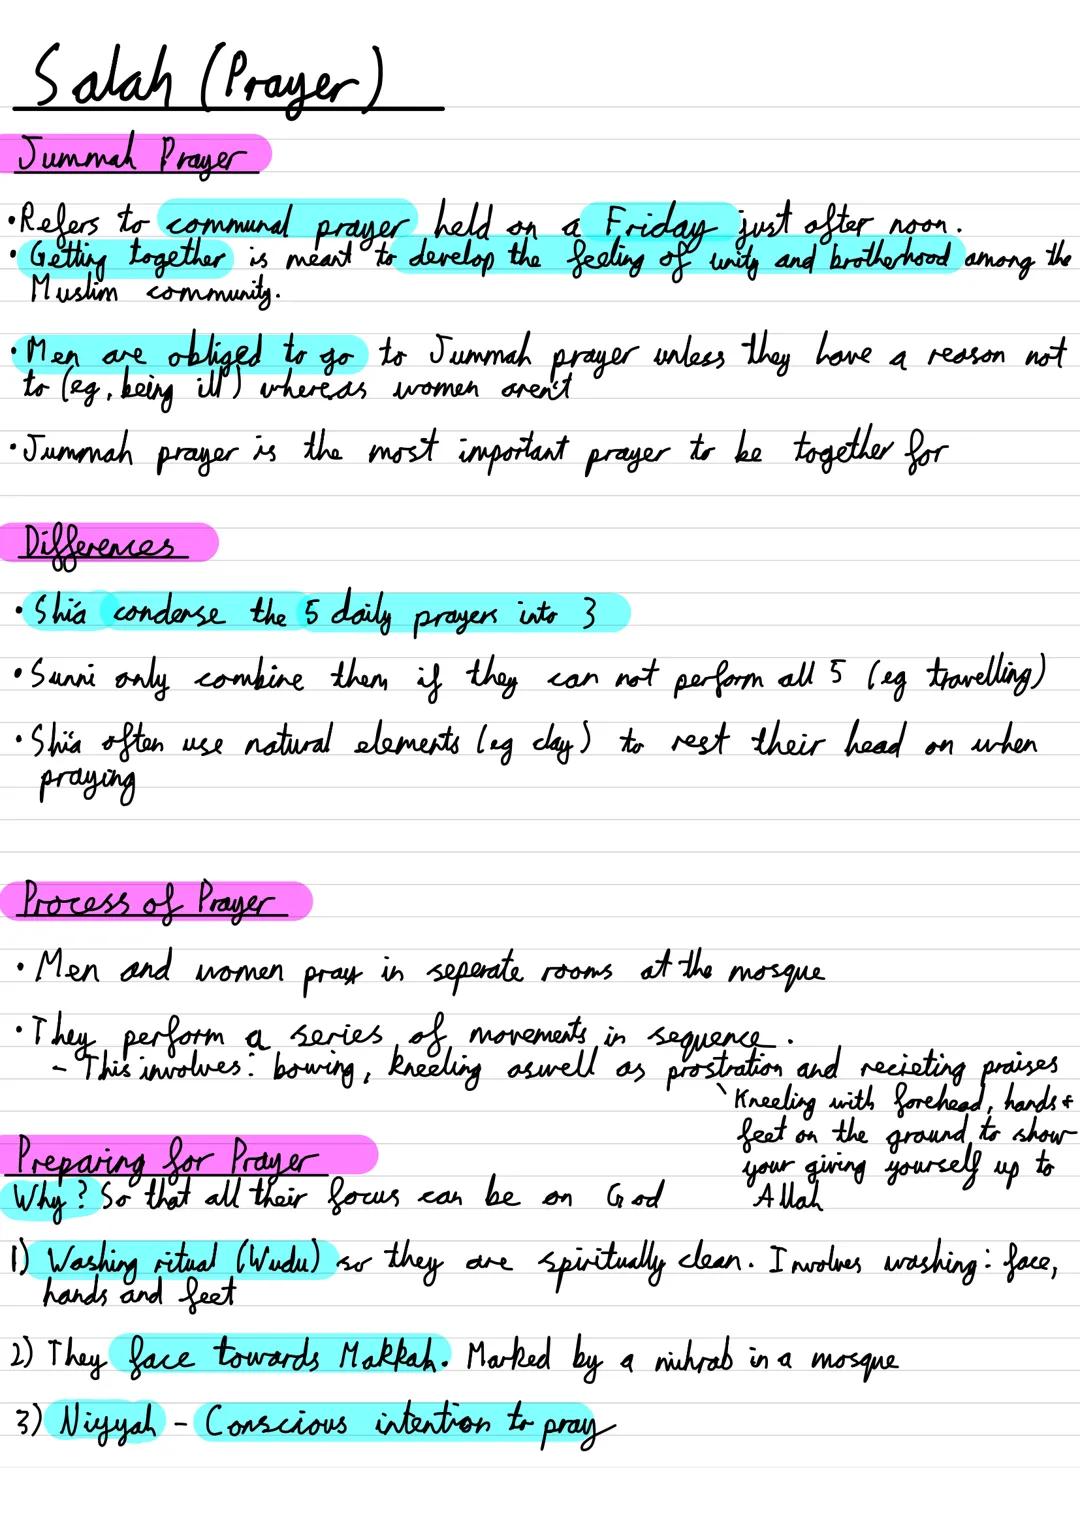 Salah (Prayer)
Jummah Prayer
•Refers to communal prayer held on a Friday just after noon.
• Getting together is meant to develop the feeling of unity and brotherhood among the
Muslim community.
•Men are obliged to go to Jummah prayer unless they have a reason not
to (eg, being ill) whereas women aren't
•Jummah prayer is the most important prayer to be together for
Differences
• Shi'a condense the 5 daily prayers into 3
•Sunni only combine them if they can not perform all 5 (eg travelling)
•Shi'a often use natural elements (eg clay) to rest their head on when
praying
Process of Prayer
• Men and women pray in seperate rooms at the mosque
•They perform a series of movements in sequence.
- This involves: bowing, kneeling aswell as prostration and recieting praises
Kneeling with forehead, hands &
feet on the ground to show
your giving yourself up to
Allah
Preparing for Prayer
Why? So that all their focus can be on God
1) Washing ritual (Wudu) so they are spiritually clean. Involves washing: face,
hands and feet
2) They face towards Makkah. Marked by a mihrab in a mosque
3) Niyyah - Conscious intention to pray